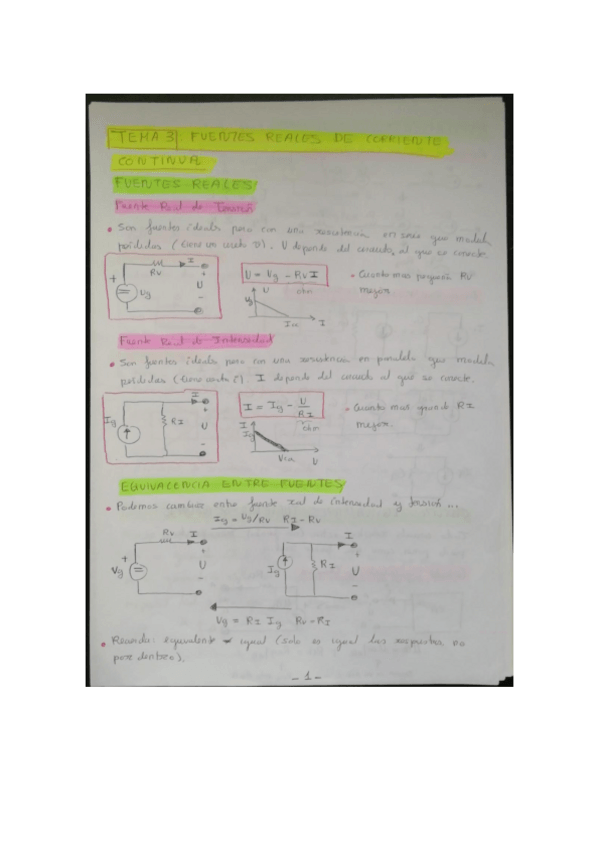 TEMA 3 FUENTES REALES DE CORRIENTE
CONTINUA
FUENTES REALES
Fuente Real de Tensión
• Son fuentes ideales pero con una resistencia en serie que modela
pérdidas (tiene un cierto). U depende del conecdo al que se conecte.
Rv I
+ Ug U -
U = Vg - Rv I
• Cuanto mas pequeña Rv
mejor.
U
ohm
Ug
Icn I
Fuente Real de Intensidad
• Son fuentes ideales pero con una resistencia en paralelo que modela
pérdidas (tiene cierto). I depende del conecdo al que se conecte.
I
Ig RI + U -
I = Ig - U/RI
• Cuanto mas grande RI
mejor.
I
ohm
Ig
Vca U
EQUIVALENCIA ENTRE FUENTES
• Podemos cambiar entre fuente real de intensidad y tensión...
Ig = Ug/RV RI = RV
Rv I
+ Vg + U -
I
Ig RI + U -
Vg = RI Ig Rv = RI
• Recuerda: equivalente ≠ igual (solo es igual las respuestas no
por dentro).
- 1 -